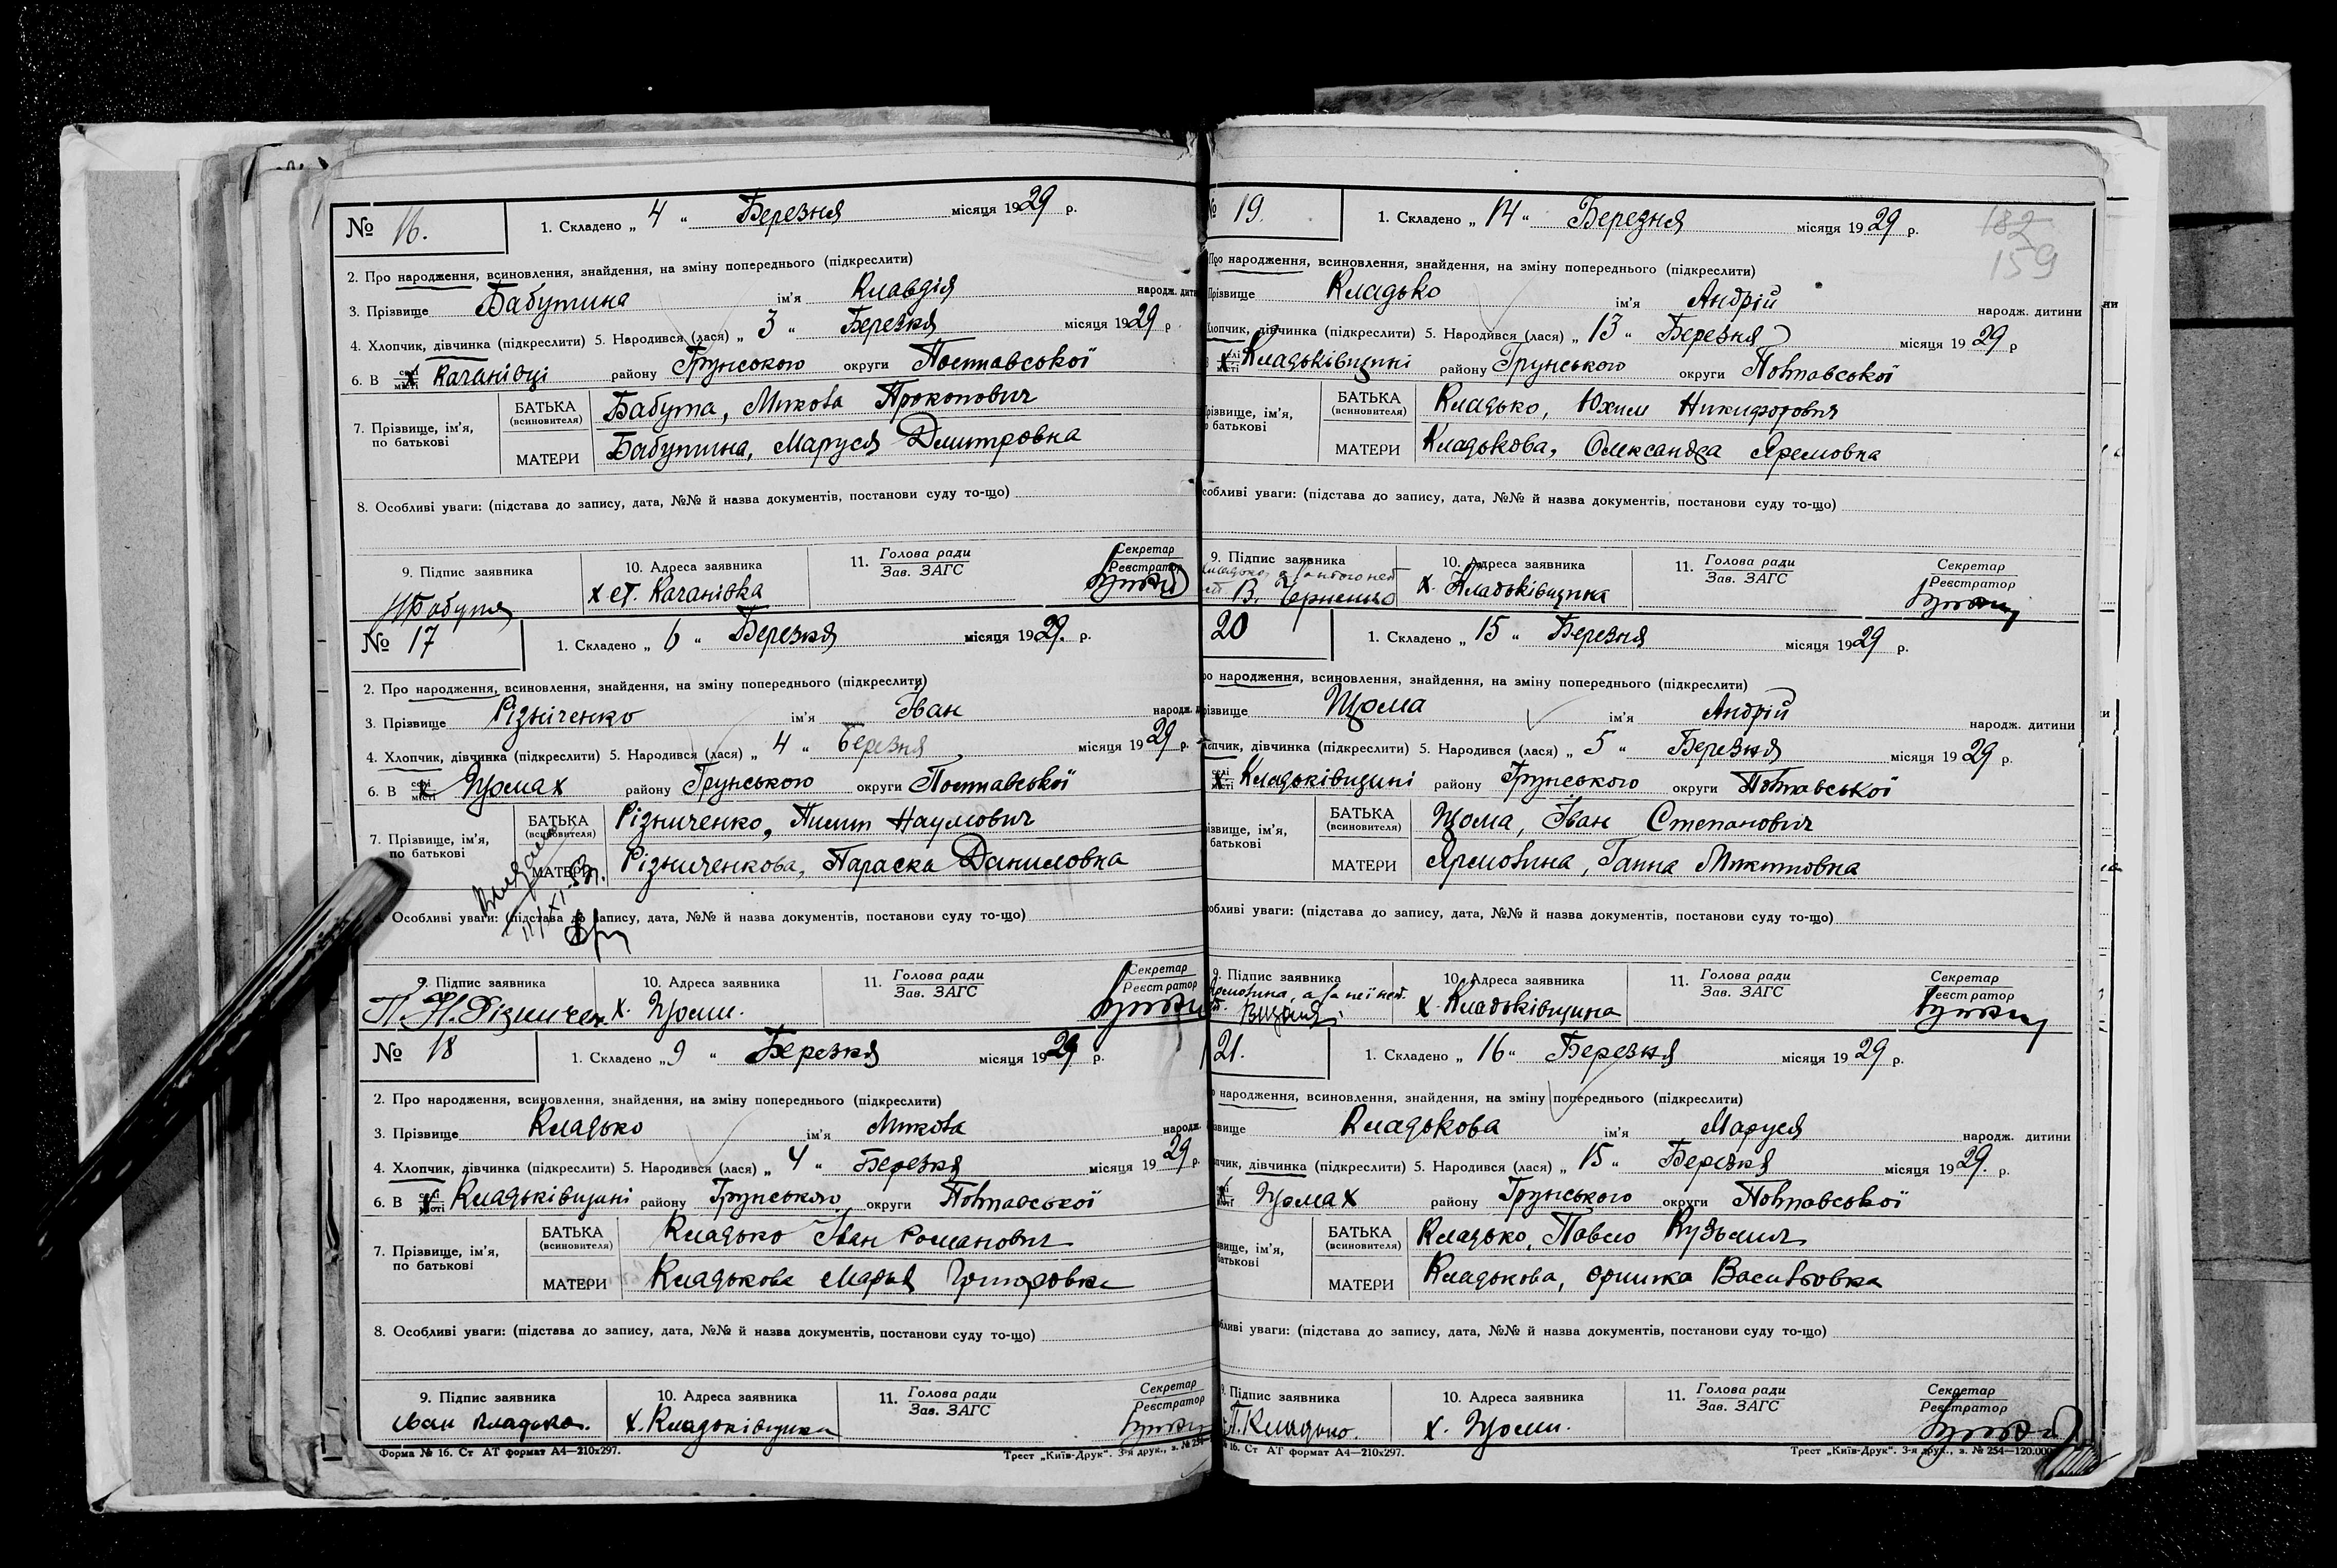 № 16.
1. Складено „ 4 “ Березня місяця 1929 р.
2. Про народження, всиновлення, знайдення, на зміну попереднього (підкреслити)
3. Прізвище Бабутина ім'я Клавдія народж. дитини
4. Хлопчик, дівчинка (підкреслити) 5. Народився (лася) „ 3 “ Березня місяця 1929 р
6. В х Качанівці району Грунського округи Полтавської
7. Прізвище, ім'я, по батькові
БАТЬКА (всиновителя) Бабута, Микола Прокопович
МАТЕРИ Бабутина, Маруся Дмитровна
8. Особливі уваги: (підстава до запису, дата, №№ й назва документів, постанови суду то-що)
9. Підпис заявника 10. Адреса заявника 11. Голова ради Зав. ЗАГС Секретар Реєстратор
Бабута х ст. Качанівка
№ 17
1. Складено „ 6 “ Березня місяця 1929. р.
2. Про народження, всиновлення, знайдення, на зміну попереднього (підкреслити)
3. Прізвище Різніченко ім'я Іван народж.
4. Хлопчик, дівчинка (підкреслити) 5. Народився (лася) „ 4 “ Березня місяця 1929 р.
6. В х Цьомах району Грунського округи Полтавської
7. Прізвище, ім'я, по батькові
БАТЬКА (всиновителя) Різниченко, Пилип Наумович
МАТЕРИ Різниченкова, Параска Даниловна
Особливі уваги: (підстава до запису, дата, №№ й назва документів, постанови суду то-що)
9. Підпис заявника 10. Адреса заявника 11. Голова ради Зав. ЗАГС Секретар Реєстратор
П. Н. Різничен х. Цьоми.
№ 18
1. Складено „ 9 “ Березня місяця 1929 р.
2. Про народження, всиновлення, знайдення, на зміну попереднього (підкреслити)
3. Прізвище Кладько ім'я Микола народж.
4. Хлопчик, дівчинка (підкреслити) 5. Народився (лася) „ 4 “ Березня місяця 1929 р.
6. В х Кладьківщині району Грунського округи Полтавської
7. Прізвище, ім'я, по батькові
БАТЬКА (всиновителя) Кладько Іван Романович
МАТЕРИ Кладькова Марья Григоровна
8. Особливі уваги: (підстава до запису, дата, №№ й назва документів, постанови суду то-що)
9. Підпис заявника 10. Адреса заявника 11. Голова ради Зав. ЗАГС Секретар Реєстратор
Іван Кладько. х. Кладьківщина
Форма № 16. Ст АТ формат А4—210х297. Трест „Київ-Друк". 3-я друк., з. № 254
№ 19.
1. Складено „ 14 “ Березня місяця 1929 р.
182
159
Про народження, всиновлення, знайдення, на зміну попереднього (підкреслити)
Прізвище Кладько ім'я Андрій народж. дитини
Хлопчик, дівчинка (підкреслити) 5. Народився (лася) „ 13 “ Березня місяця 1929 р
х Кладьківщині району Грунського округи Полтавської
Прізвище, ім'я, батькові
БАТЬКА (всиновителя) Кладько, Юхим Никифорович
МАТЕРИ Кладькова, Олександра Яремовна
собливі уваги: (підстава до запису, дата, №№ й назва документів, постанови суду то-що)
9. Підпис заявника 10. Адреса заявника 11. Голова ради Зав. ЗАГС Секретар Реєстратор
х. Кладьківщина
20
1. Складено „ 15 “ Березня місяця 1929 р.
народження, всиновлення, знайдення, на зміну попереднього (підкреслити)
ізвище Цьома ім'я Андрій народж. дитини
дівчинка (підкреслити) 5. Народився (лася) „ 5 “ Березня місяця 1929 р.
х Кладьківщині району Грунського округи Полтавської
ізвище, ім'я, батькові
БАТЬКА (всиновителя) Цьома, Іван Степанович
МАТЕРИ Ярмолина, Ганна Микитовна
обливі уваги: (підстава до запису, дата, №№ й назва документів, постанови суду то-що)
9. Підпис заявника 10. Адреса заявника 11. Голова ради Зав. ЗАГС Секретар Реєстратор
х. Кладьківщина
21.
1. Складено „ 16 “ Березня місяця 1929 р.
народження, всиновлення, знайдення, на зміну попереднього (підкреслити)
звище Кладькова ім'я Маруся народж. дитини
дівчинка (підкреслити) 5. Народився (лася) „ 15 “ Березня місяця 1929. р.
х Цьомах району Грунського округи Полтавської
звище, ім'я, батькові
БАТЬКА (всиновителя) Кладько, Павло Кузьмич
МАТЕРИ Кладькова, Оришка Васильовна
бливі уваги: (підстава до запису, дата, №№ й назва документів, постанови суду то-що)
9. Підпис заявника 10. Адреса заявника 11. Голова ради Зав. ЗАГС Секретар Реєстратор
П. Кладько. х. Цьоми.
№ 16. Ст АТ формат А4—210х297. Трест „Київ-Друк". 3-я друк., з. № 254—120.000